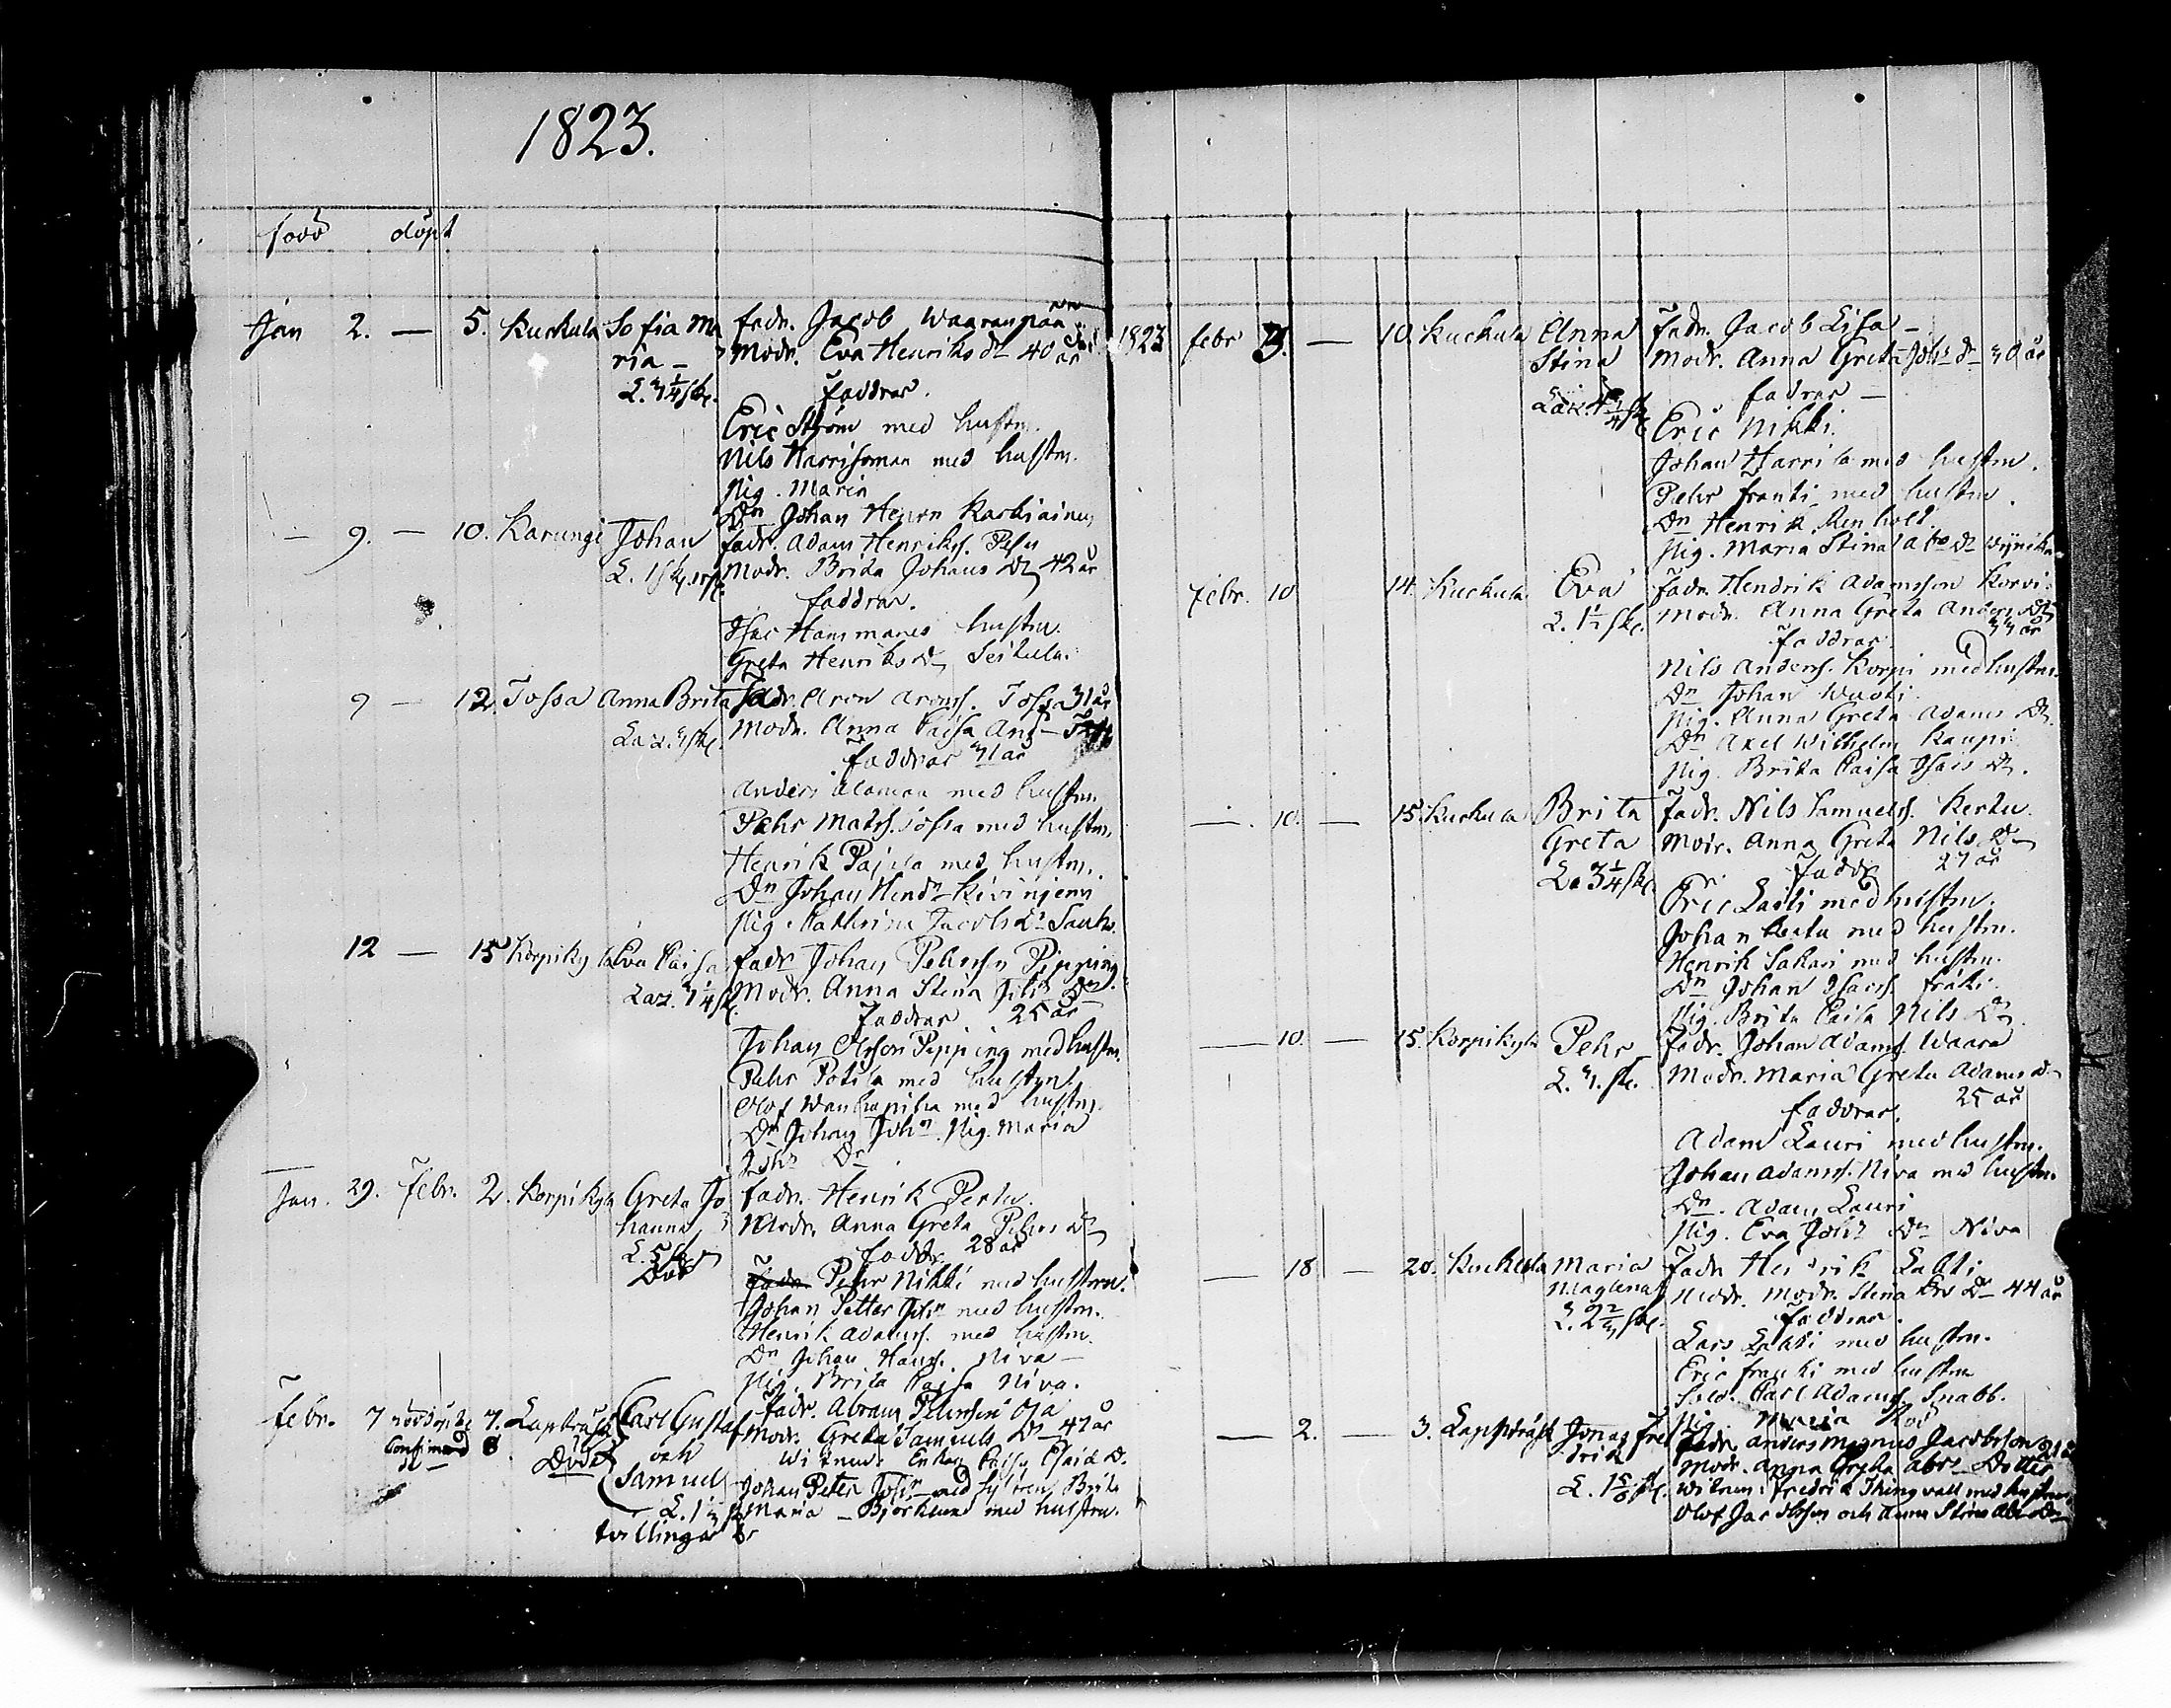 1823.
född döpt
Jan 2. — 5. Kuckula Sofia Ma
ria —
fadr. Jacob Waaranpää
Modr. Eva Henriks dr 40 år
faddrar.
Eric Ström med hustru.
Nils Harrisoman med hustru.
Pig. Maria
Dn Johan Henrn Karkiainen
— 9. — 10. Karungi Johan
fadr. Adam Henrikss. Pesu
Modr. Brita Johans Dr 42 år
faddrar.
Isac Hans manes hustru.
Greta Henriks Dr Seitula.
9 — 12. Tossa Anna Brita
fadr. Aron Aronss. Tossa 31 år
Modr. Anna Caisa
faddrar 31 år
Anders Alaman med hustru.
Pehr Matss. Tossa med hustru.
Henrik Pajula med hustru.
Dn Johan Hendn Kivinjemi
Pig. Kathrina Jacobs Dr
12 — 15 Korpikyla Eva Caisa
fadr Johan Pehrsson Pipping
Modr. Anna Stina Johs Dr
faddrar 25 år
Johan Olsson Pipping med hustru.
Pehr Potila med hustru.
Olof Wanhapiha med hustru.
Dn Johan John. Pig. Maria
Johs Dr
Jan. 29. Febr. 2. Korpikyla Greta Jo
hanna
Död
fadr. Henrik Pertu.
Modr. Anna Greta Pehrs Dr
faddr. 28 år
fadr. Pehr Nikki med hustru.
Johan Petter John med hustru.
Henrik Adamss. med hustru.
Dn Johan Hanss. Niva —
Pig. Brita Caisa Niva.
Febr. 7 nöddöpte 7. Lapträsk Carl Gustaf
Confirmerad 8.
Döda
och
Samuel
tvillingar
fadr. Abram Pehrsson Oja
Modr. Greta Samuels Dr 47 år
Wittnen: Enkan Caisa Esaie D.
Johan Peter Johsn med systren Brita
Maria — Björklund med hustru.
1823 febr 3. — 10. Kuckula Anna
Stina
fadr. Jacob Lisa —
modr. Anna Greta Johs dr 30 år
fadrar —
Eric Nikki.
Johan Harrila med hustru.
Pehr Franki med hustru.
Dn Henrik Renholt.
Pig. Maria Stina
febr. 10 14. Kuckula Eva
fadr. Hendrik Adamsson Korvi.
modr. Anna Greta Anders Dr
33 år
faddrar
Nils Anderss. Korpi med hustru.
Dn Johan Wuoti.
Pig. Anna Greta Adams Dr.
Dn Axel Wilhelm Kaupi
Pig. Brita Caisa Isacs Dr.
— 10. — 15. Kuckula Brita
Greta
fadr. Nils Samuelss. Kertu.
Modr. Anna Greta Nils Dr
27 år
faddr
Eric Lasti med hustru.
Johan Kertu med hustru.
Henrik Sakari med hustru.
Dn Johan Isacss.
Pig. Brita Caisa Nils Dr
— 10. — 15. Korpikyla Pehr
fadr. Johan Adamss. Waara
Modr. Maria Greta Adams Dr
25 år
faddrar.
Adam Lauri med hustru.
Johan Adamss. Niva med hustru.
Dn. Adam Lauri
Pig. Eva Johs Dr Niva
— 18 — 20. Kuckula Maria
Maglena
fadr. Henrik Lahti
modr. Stina Dr 44 år
faddrar.
Lars Lahti med hustru.
Eric Franki med hustru
Sold. Carl Adamss. Snabb.
Pig. Maria
— 2. — 3. Lappträsk Jonas Fre
drik
fadr. Anders Magnus Jacobsson
Modr. Anna Greta
Wittnen: Fredrik Thingvall med hustru
Olof Jacobsson och Anna Stina